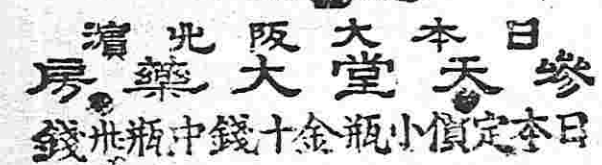 日本大阪北濱
參天堂大藥房
日本定價小瓶金十錢中瓶卅錢